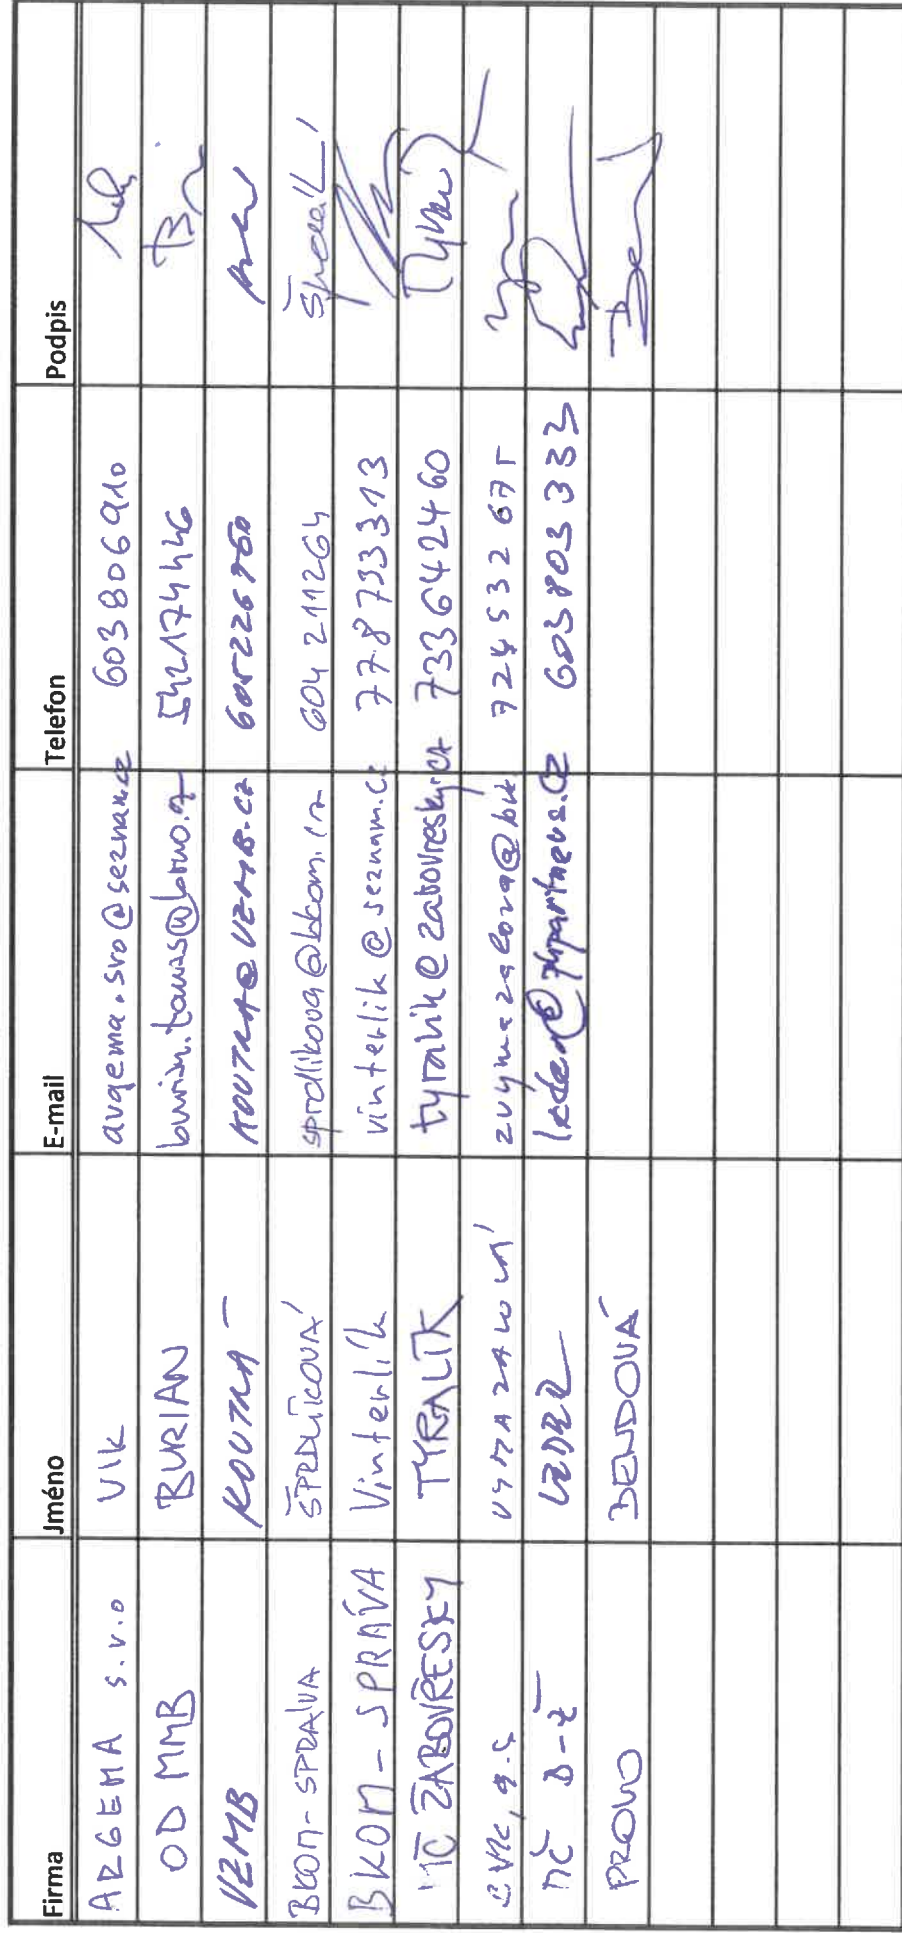 Firma Jméno E-mail Telefon Podpis
ARGEMA s.r.o Vlk argema.sro@seznam.cz 603806910
OD MMB BURIAN burian.tomas@brno.cz 542174446
VZMB KOUTNÁ KOUTNA@VZMB.CZ 605226760
BKOM-SPRÁVA ŠPRDLÍKOVÁ sprdlikova@bkom.cz 604 211264
BKOM-SPRÁVA Vinterlík vinterlik@seznam.cz 778733313
MČ ŽABOVŘESKY TYRALÍK tyralik@zabovresky.cz 733642460
VYMAZALOVÁ 724532675
MČ B-Ž LEDER 603803333
PROVO BENDOVÁ